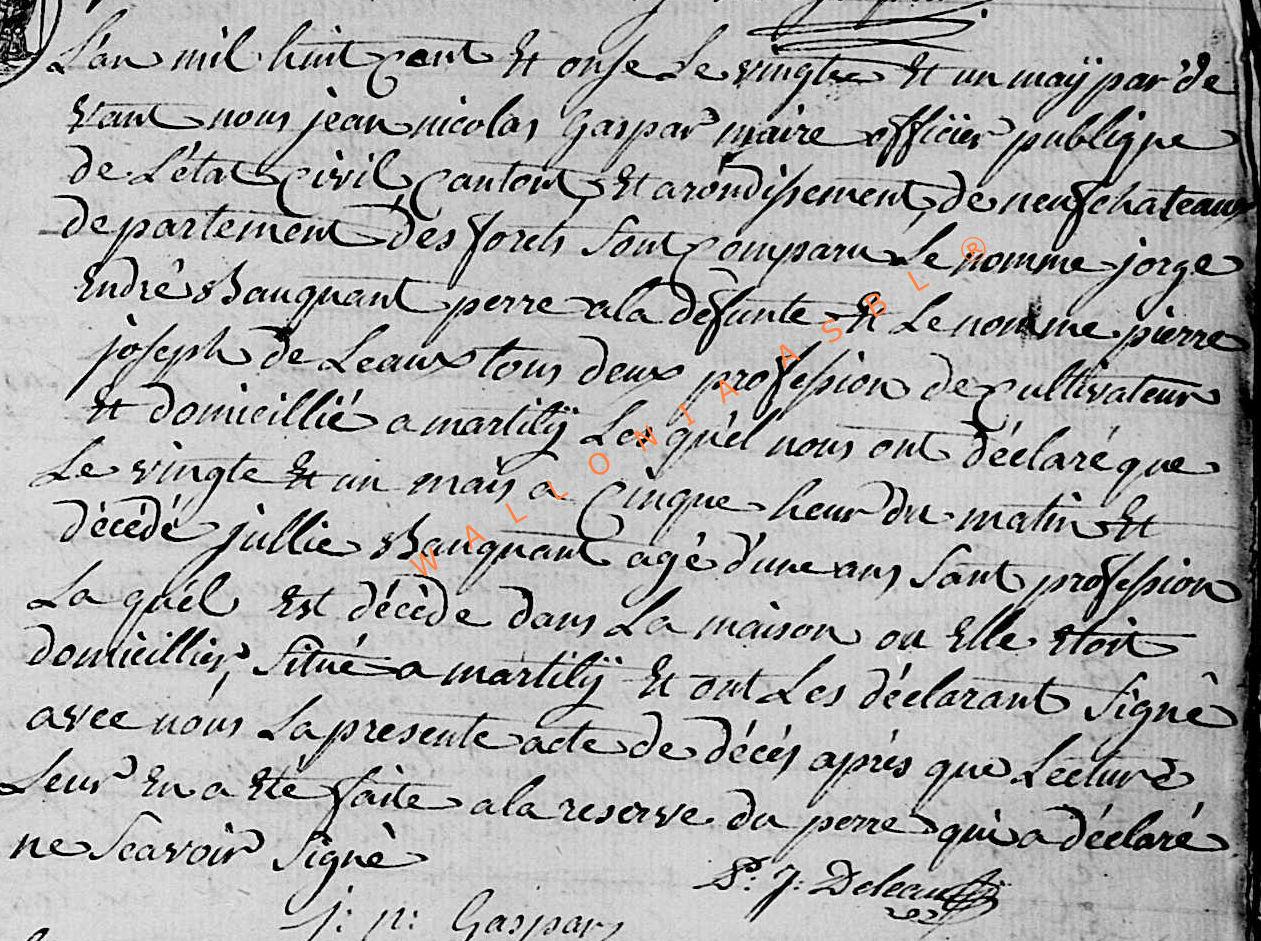 L'an mil huit cent Et onse Le vingte Et un maÿ par de
vant nous jean nicolas Gaspar maire officier publique
de L'état Civil Canton Et arondissement de neufchateaux
departement des forets sont comparu Le nomme jorge
Endré Bauquant perre a la defunte Et Le nomme pierre
joseph de Leaux tous deux profession de cultivateur
Et domicillié a martilÿ Les quél nous ont déclaré que
Le vingte Et un maÿ a Cinque heur du matin Et
décédé jullie Bauquant agé d'une ans sant profession
La quél Est décéde dans La maison ou Elle Etoit
domicillier situé a martilÿ Et ont Les déclarant signê
avec nous La presente acte de décés aprés que Lecture
Leur En a Eté faite a la reserve du perre qui a déclaré
ne scavoir signè
P: J: Deleau
j: n: Gaspar
WALLONIA ASBL ®